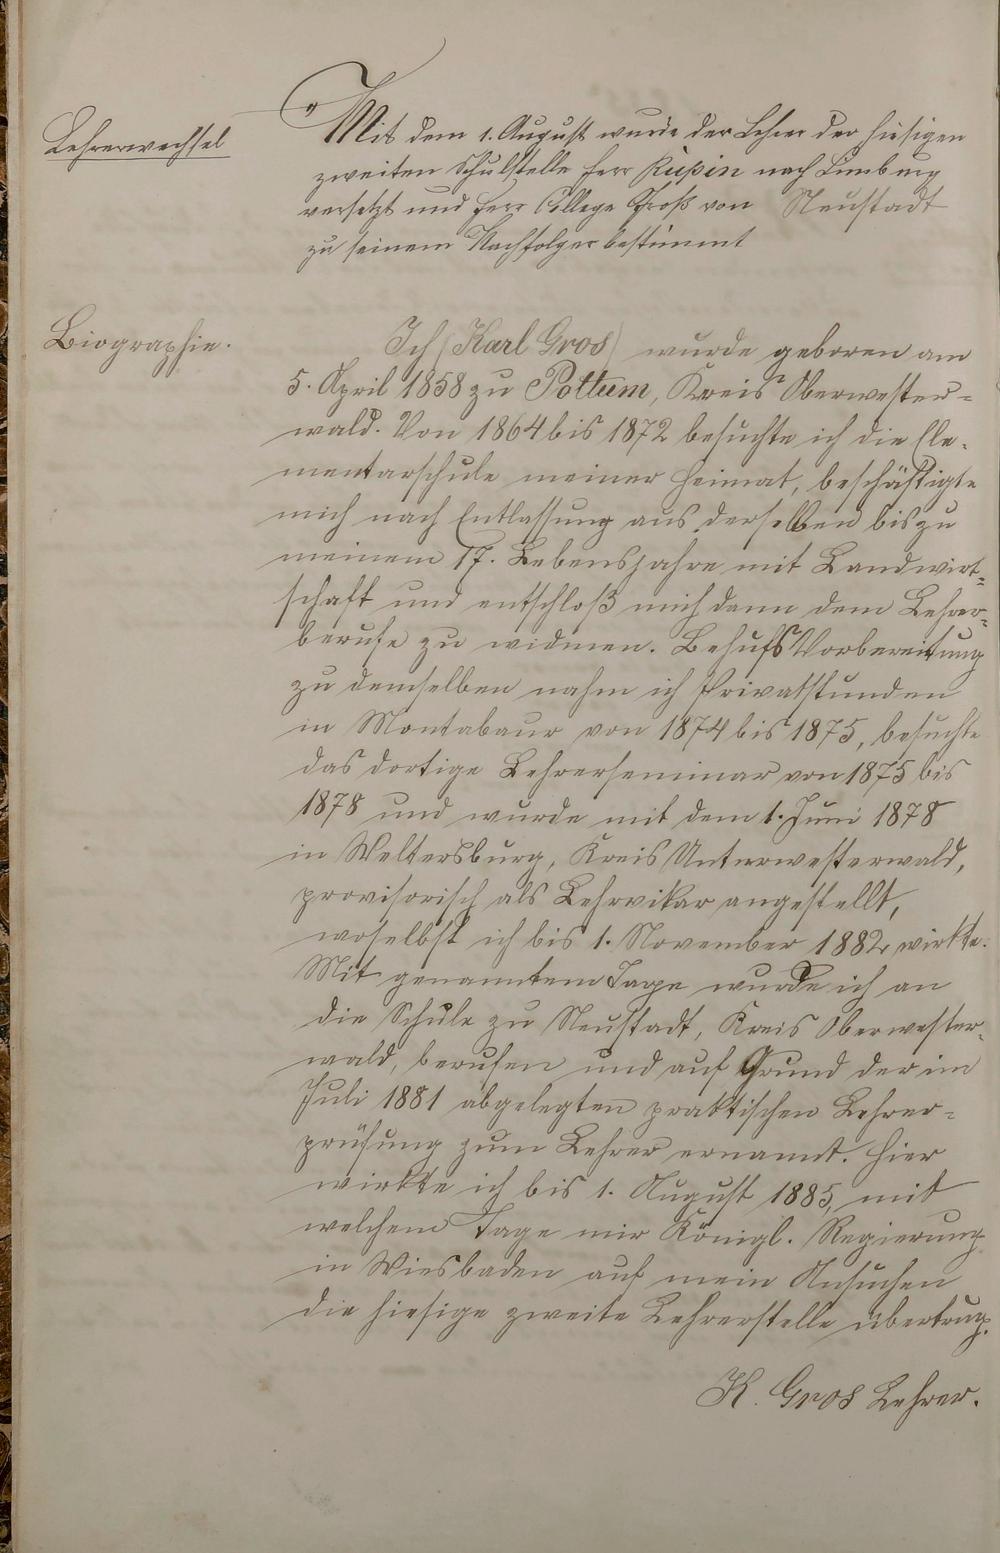 Lehrerwechsel
Mit dem 1. August wurde der Lehrer der hiesigen
zweiten Schulstelle Herr Küpin nach Limburg
versetzt und Herr College Groß von Neustadt
zu seinem Nachfolger bestimmt
Biographie.
Ich (Karl Gros) wurde geboren am
5. April 1858 zu Pottum, Kreis Oberwester-
wald. Von 1864 bis 1872 besuchte ich die Ele-
mentarschule meiner Heimat, beschäftigte
mich nach Entlassung aus derselben bis zu
meinem 17. Lebensjahre mit Landwirt-
schaft und entschloß mich dann dem Lehrer-
berufe zu widmen. Behufs Vorbereitung
zu demselben nahm ich Privatstunden
in Montabaur von 1874 bis 1875, besuchte
das dortige Lehrerseminar von 1875 bis
1878 und wurde mit dem 1. Juni 1878
in Weltersburg, Kreis Unterwesterwald,
provisorisch als Lehrvikar angestellt,
woselbst ich bis 1. November 1882 wirkte.
Mit genanntem Tage wurde ich an
die Schule zu Neustadt, Kreis Oberwester-
wald, berufen und auf Grund der im
Juli 1881 abgelegten praktischen Lehrer-
prüfung zum Lehrer ernannt. Hier
wirkte ich bis 1. August 1885, mit
welchem Tage mir Königl. Regierung
in Wiesbaden auf mein Ansuchen
die hiesige zweite Lehrerstelle übertrug.
K. Gros Lehrer.